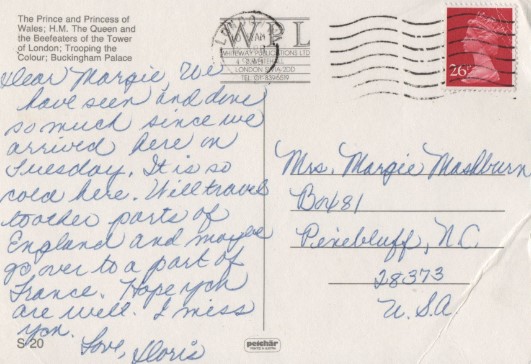 The Prince and Princess of
Wales; H.M. The Queen and
the Beefeaters of the Tower
of London; Trooping the
Colour; Buckingham Palace
WPL
WHITEWAY PUBLICATIONS LTD
LONDON
TEL
26
Dear Margie, We
have seen and done
so much since we
arrived here on
Tuesday. It is so
cold here. Will travel
to other parts of
England and maybe
go over to a part of
France. Hope you
are well. I miss
you.
Love, Doris
Mrs. Margie Mashburn
Box 81
Pinebluff, N.C.
28373
U.S.A.
S-20
peichär